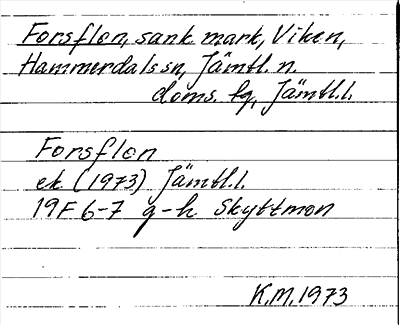 Forsflon, sank mark, Viken,
Hammerdals sn, Jämtl. n.
doms. fg, Jämtl.l.
Forsflon
ek (1973) Jämtl.l.
19F 6-7 g-h Skyttmon
K.M. 1973